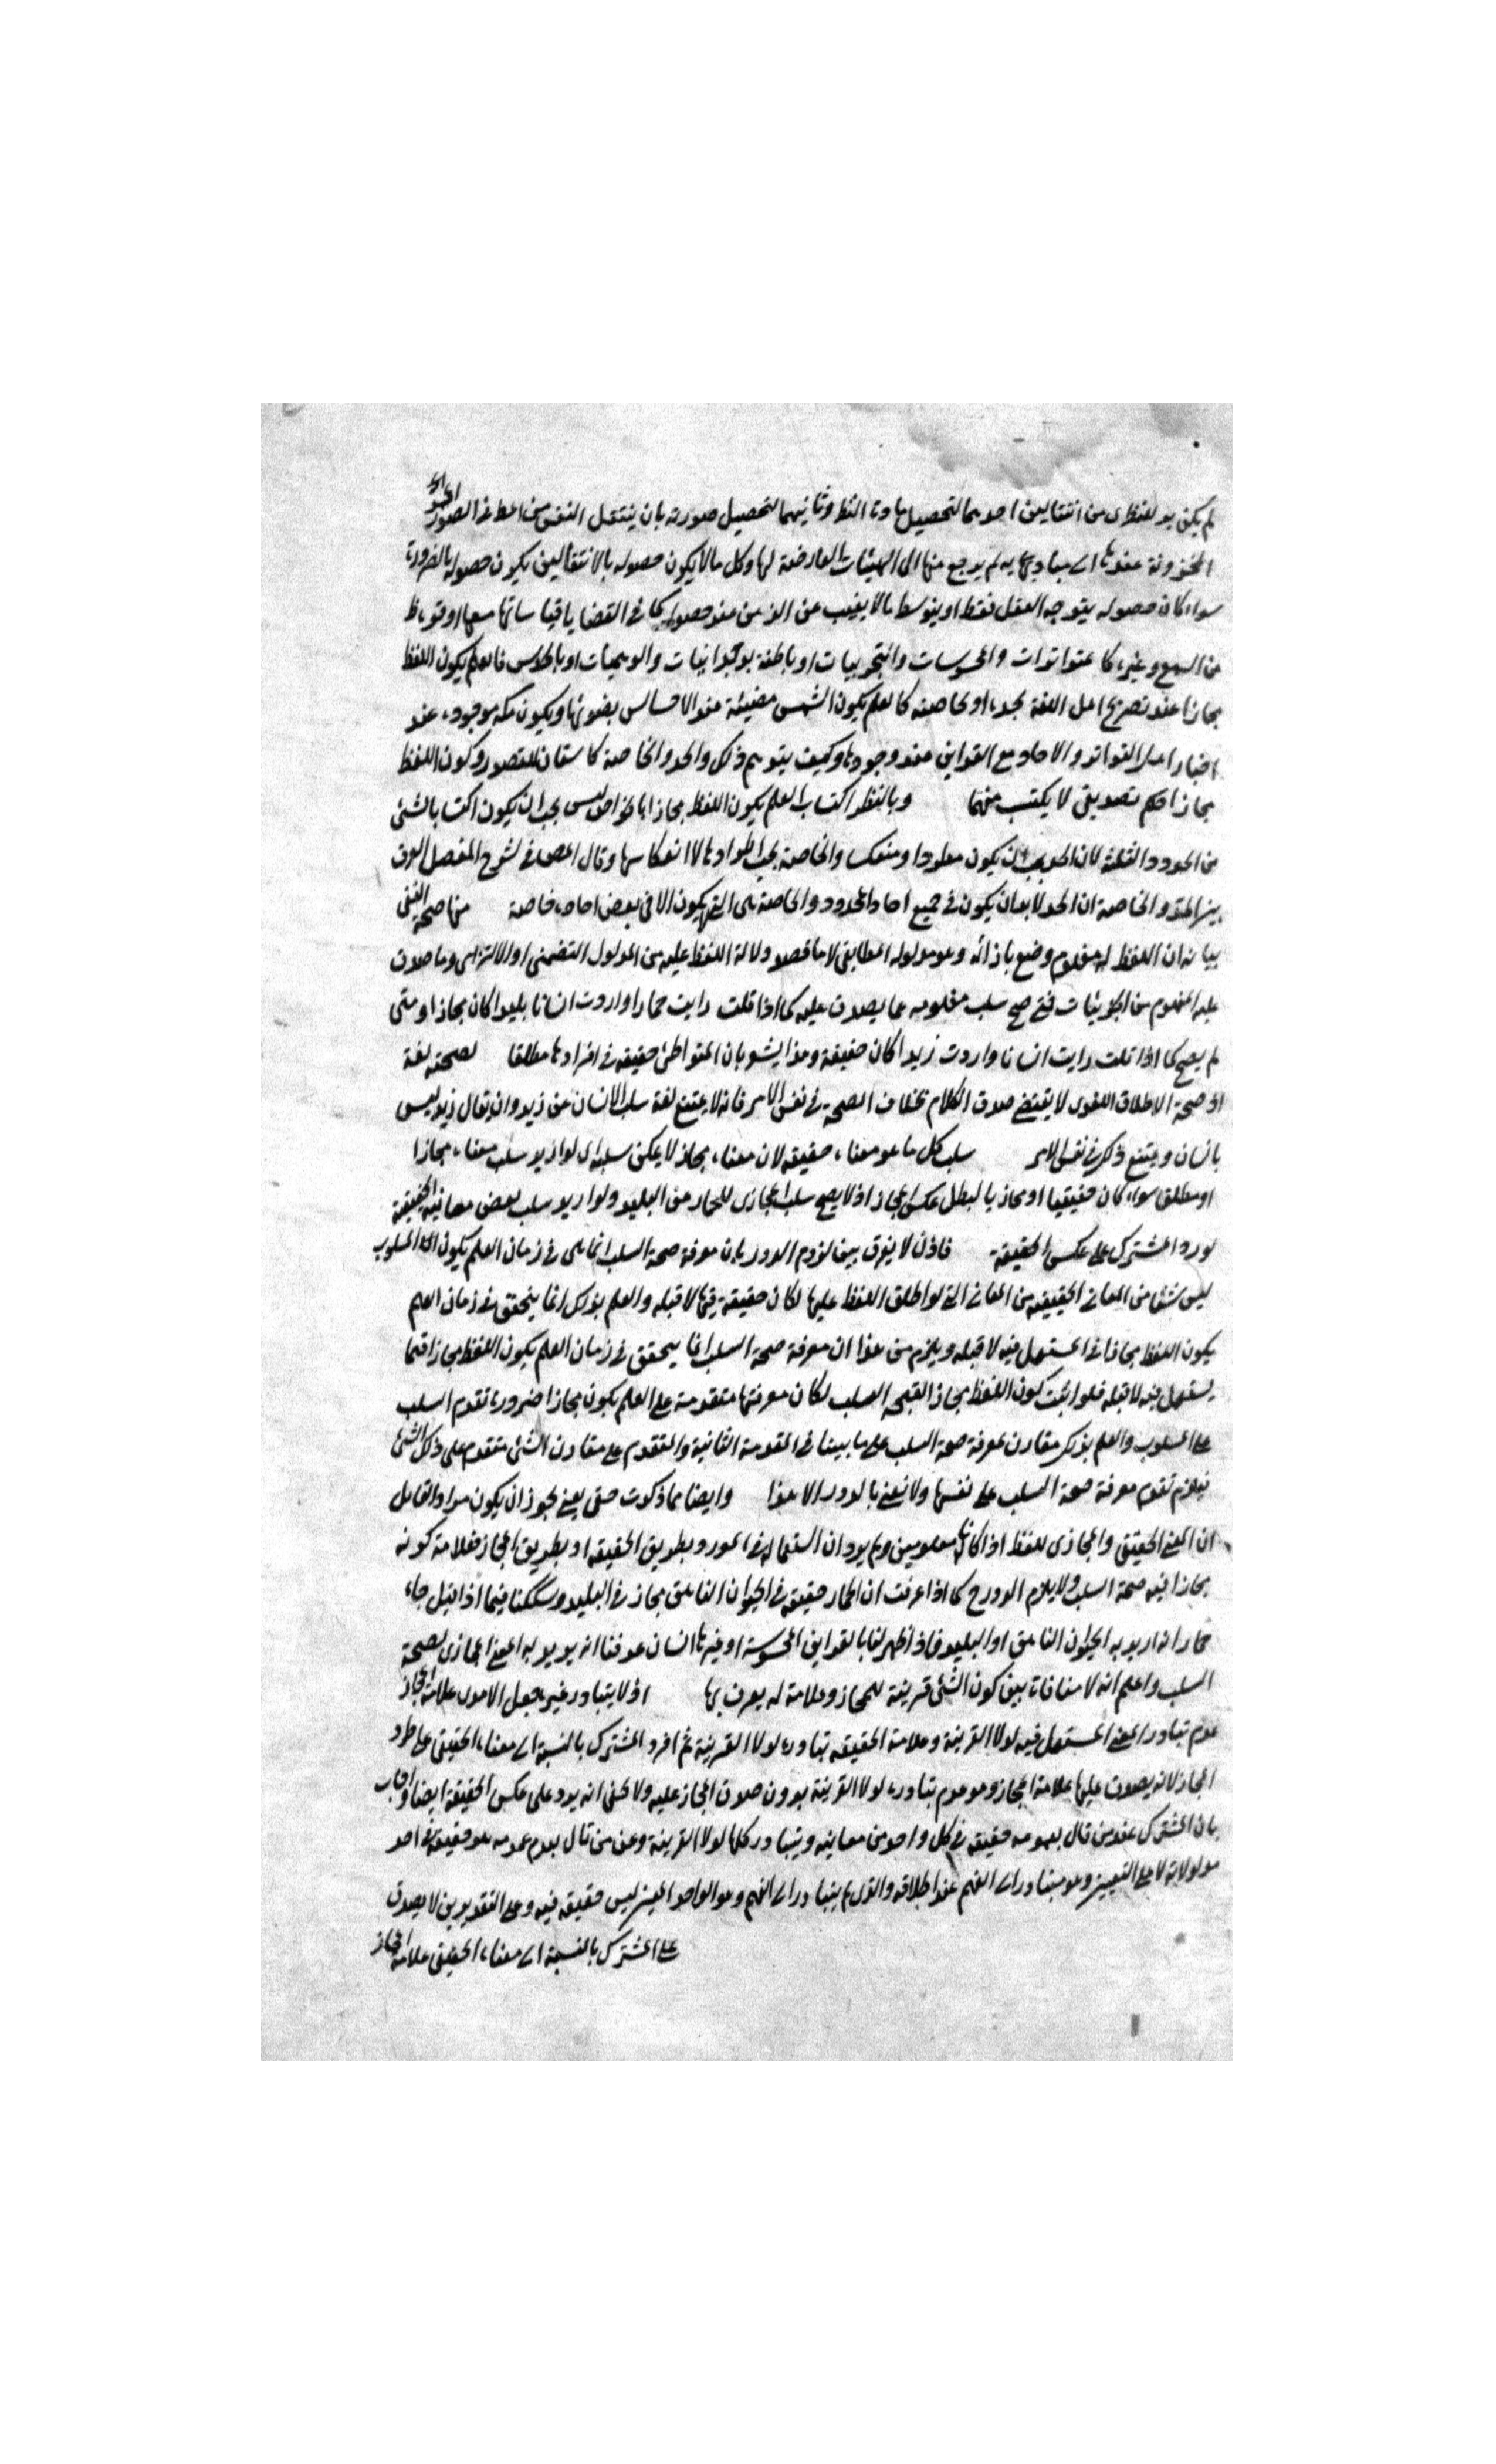 لم يكن بد للنظرى من انتقالين احدهما لتحصيل مادة النظر وثانيهما لتحصيل صورته بان ينتقل النفس من المط فى الصور
المخزونة عندها الى مباديها به ثم يرجع منها الى الهيئات العارضة لها وكل ما لا يكون حصوله بالانتقالين يكون حصوله بالضرورة
سواء كان حصوله بتوجه العقل فقط او بتوسط ما لا يغيب عن الذهن عند حصوله كما فى القضايا قياساتها معها او قوة ظ
من السمع وغيره كا متواترات والمحسوسات والتجربيات او باطنة بوجدانيات والوهميات او بالحدس فالعلم بكون اللفظ
مجازا عند تصريح اهل اللغة بحده او بخاصته كالعلم بكون الشمس مضيئة عند الاحساس بضوئها وبكون مكة موجودة عند
اخبار اهل التواتر والاحاد مع القراين عند وجودها وكيف يتوهم ذلك والحد والخاصة كاسبان للتصور وكون اللفظ
مجازا حكم تصديقى لا يكتسب منهما وبالنظر اكتساب العلم بكون اللفظ مجازا بالخواص ليس يجب ان يكون اكتسابا لشئ
من الحدود الثلثة لان الحد يجب ان يكون مطردا ومنعكسا والخاصة يجب اطرادها لا انعكاسها وقال المص فى شرح المفصل الفرق
بين الحد والخاصة ان الحد لا بد ان يكون فى جميع احاد المحدود والخاصة هى التى يكون الا فى بعض احاده خاصة منها صحة النفى
بيانه ان اللفظ له مفهوم وضع بازائه وهو مدلوله المطابقى لا ما قصد دلالة اللفظ عليه من المدلول التضمنى او الالتزامى وما صدق
عليه المفهوم من الجزئيات فمتى صح سلب مفهومه عما يصدق عليه كما اذا قلت رايت حمارا واردت انسانا بليدا كان مجازا ومتى
لم يصح كما اذا قلت رايت انسانا واردت زيدا كان حقيقة وهذا يشعر بان المتواطئ حقيقة فى افرادها مطلقا لصحته لغة
اذ صحة الاطلاق اللغوى لا يقتضى صدق الكلام بخلاف الصحة فى نفس الامر فانه لا يمتنع لغة سلب الانسان عن زيد وان يقال زيد ليس
بانسان ويمتنع ذلك فى نفس الامر سلب كل ما هو معناه حقيقة لان معناه مجاز لا يمكن سلبه اذ لو اريد سلب معناه مجازا
او مطلق سواء كان حقيقيا او مجازيا لبطل عكس المجاز اذ لا يصح سلب المجازى للحمار من البليد ولو اريد سلب بعض معانيه الحقيقة
لورد المشترك على عكس الحقيقة فاذن لا يفرق بين لزوم الدور بان معرفة صحة السلب انما هى فى زمان العلم بكون المسلوب
ليس شئا من المعانى الحقيقية من المعانى التى لو اطلق اللفظ عليها لكان حقيقة فيها لا قبله والعلم بذلك انما يتحقق فى زمان العلم
بكون اللفظ مجازا فى المستعمل فيه لا قبله ويلزم من هذا ان معرفة صحة السلب انما يتحقق فى زمان العلم بكون اللفظ مجازا فيما
يستعمل فيه لا قبله فلو اثبت كون اللفظ مجازا بصحة السلب لكان معرفتها متقدمة على العلم بكون مجازا ضرورة تقدم السلب
على المسلوب والعلم بذلك مقارن لمعرفة صحة السلب على ما بينا فى المقدمة الثانية والمتقدم على مقارن الشئ متقدم على ذلك الشئ
فيلزم تقدم معرفة صحة السلب على نفسها ولا نعنى بالدور الا هذا وايضا مما ذكرت حتى يعنى يجوز ان يكون مراد القايل
ان المعنى الحقيقى والمجازى للفظ اذا كانا معلومين ولم يرد ان استعماله فى المورد بطريق الحقيقة او بطريق المجاز فعلامة كونه
مجازا فيه صحة السلب ولا يلزم الدورح كما اذا عرفت ان الحمار حقيقة فى الحيوان الناهق مجاز فى البليد وشككنا فيما اذا قيل جاء
حمار انه اريد به الحيوان الناهق او البليد فاذا ظهر لنا بالقراين المحسوسة او غيرها انسان عرفنا انه يريد به المعنى المجازى لصحة
السلب واعلم انه لا منافات بين كون الشئ قرينة للمجاز وعلامة له يعرف بها اذ لا يتبادر غيره جعل الامدى علامة المجاز
عدم تبادر المعنى المستعمل فيه لولا القرينة وعلامة الحقيقة تبادره لولا القرينة ثم افرد المشترك بالنسبة الى معناه الحقيقى على طرد
المجاز لانه يصدق عليها علامة المجاز وهو عدم تبادره لولا القرينة بدون صدق المجاز عليه ولا يخفى انه يرد على عكس الحقيقة ايضا واجاب
بان المشترك عند من قال بعمومه حقيقة فى كل واحد من معانيه ويتبادر كلها لولا القرينة وعن من قال بعدم عمومه هو حقيقة فى احد
مدلولاته لا على التعيين وهو متبادر الى الفهم عند اطلاقه والذى لم يتبادر الى الفهم وهو الواحد المعين ليس حقيقة فيه وعلى التقديرين لا يصدق
على المشترك بالنسبة الى معناه الحقيقى علامة المجاز